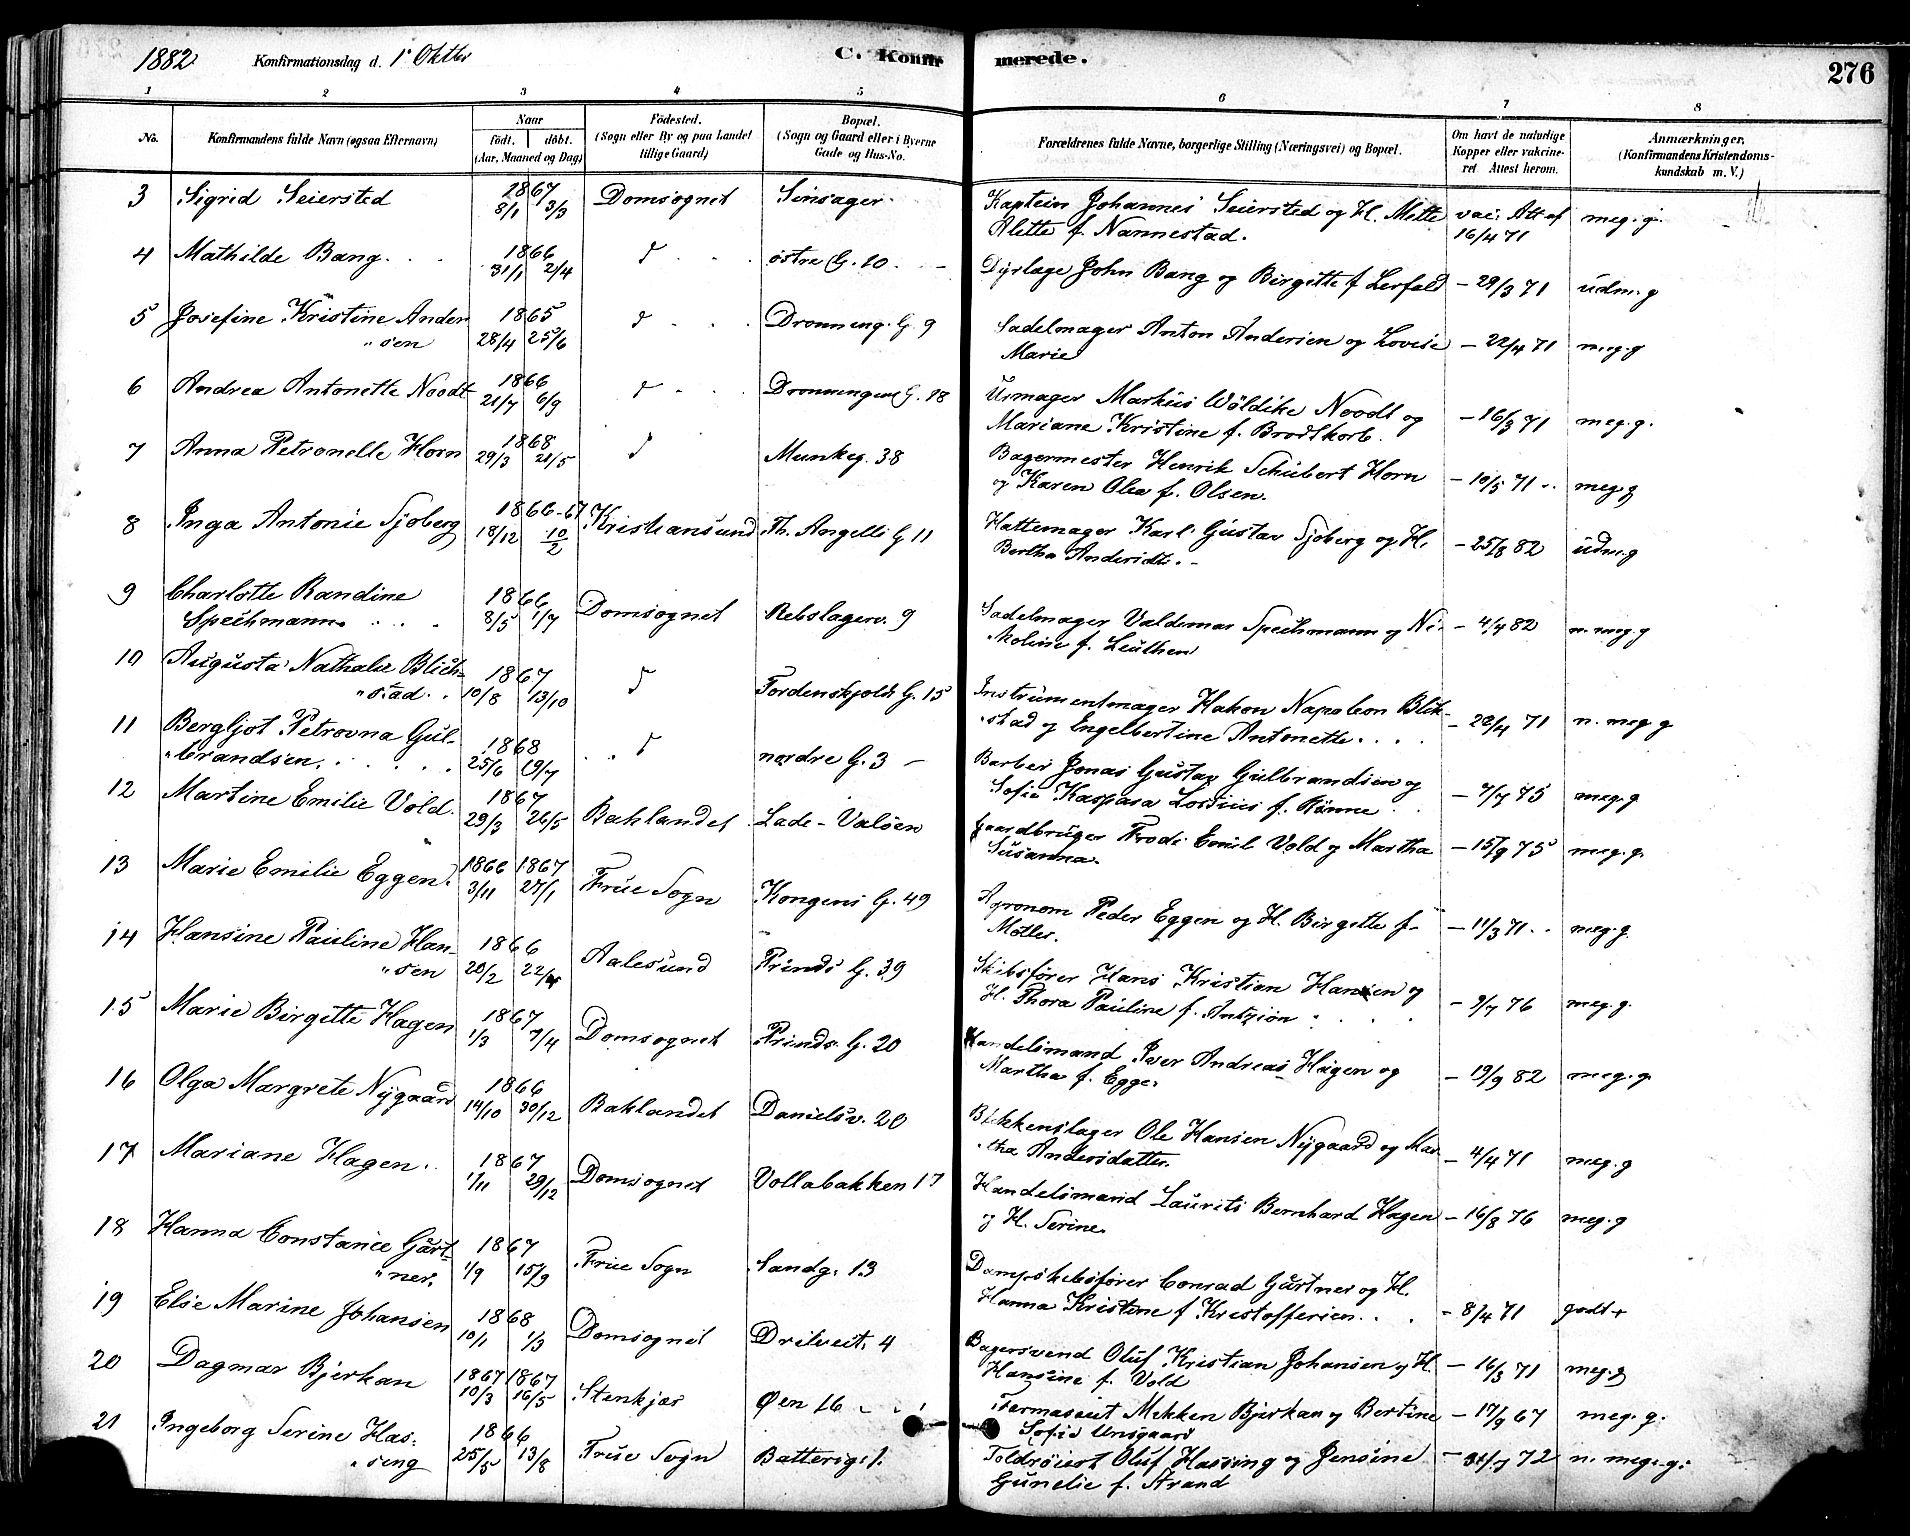 1882. Konfirmationsdag d. 1' Oktbr C. Konfirmerede. 276
1 2 3 4 5 6 7 8
No. Konfirmandens fulde Navn (ogsaa Efternavn) Naar födt. döbt. (Aar, Maaned og Dag) Födested. (Sogn eller By og paa Landet tillige Gaard) Bopæl. (Sogn og Gaard eller i Byerne Gade og Hus-No. Forældrenes fulde Navne, borgerlige Stilling (Næringsvei) og Bopæl. Om havt de naturlige Kopper eller vakcineret Attest herom. Anmærkninger, (Konfirmandens Kristendomskundskab m. V.)
3 Sigrid Seiersted 1867 8/1 3/3 Domsognet Sinsager Kaptein Johannes Seiersted og H. Mette vac. Att af meg. g.
Alette f. Nannestad. 16/4 71
4 Mathilde Bang 1866 31/1 2/4 d østre G. 10 Dyrlæge John Bang og Birgitte f Lerfald - 29/3 71 udm. g
5 Josefine Kristine Ander- 1865 28/4 25/6 d Dronneng. G. 9 Sadelmager Anton Andersen og Lovise - 22/4 71 meg. g
"sen Marie
6 Andrea Antonette Noodt 1866 21/7 6/9 d Dronningens G. 18 Urmager Markus Wöldike Noodt og - 16/3 71 meg. g.
Mariane Kristine f. Brodtkorb.
7 Anna Petronelle Horn 1868 29/3 21/5 d Munkeg. 38 Bagermester Henrik Schubert Horn - 10/5 71 meg. g
og Karen Olea f. Olsen.
8 Inga Antonie Sjøberg 1866-67 18/12 10/2 Kristiansund Th. Angells G 11 Hattemager Karl Gustav Sjøberg og H. - 25/8 82 udm. g
Bertha Andersdtr.
9 Charlotte Randine 1866 8/5 1/7 Domsognet Rebslagerv. 9 Sadelmager Valdemar Speilmann og Ni- - 4/7 82 n. meg. g
Speichmann koline f. Leuthen
10 Augusta Nathalie Blich- 1867 10/8 13/10 d Tordenskjolds G. 15 Instrumentmager Hakon Napoleon Blik- - 22/4 71 n. meg g
"stad stad og Engelbertine Antonette
11 Bergljot Petrovna Gul- 1868 25/6 19/7 d nordre G. 3 Barber Jonas Gustav Gulbrandsen og - 7/7 75 meg. g
"brandsen Sofie Kaspara Lossius f. Rønne
12 Martine Emilie Vold. 1867 29/3 26/5 Baklandet Lade-Valøen Gaardbruger Frode Emil Vold og Martha - 15/9 75 meg. g.
Susanna.
13 Marie Emilie Eggen. 1866 1867 3/11 27/1 Frue Sogn Kongens G. 49 Agronom Peder Eggen og H. Birgitte f. - 11/3 71 meg. g.
Møller.
14 Hansine Pauline Han- 1866 20/2 22/4 Aalesund Prinds G. 39 Skibsfører Hans Kristian Hansen og - 9/7 76 meg. g.
"sen H. Thora Pauline f. Antzion
15 Marie Birgitte Hagen 1867 1/3 7/4 Domsognet Prinds. G. 20 Handelsmand Iver Andreas Hagen og - 19/9 82 meg. g
Martha f. Egge.
16 Olga Margrete Nygaard 1866 14/10 30/12 Baklandet Danielsv. 20 Blikkenslager Ole Hansen Nygaard og Mar- - 4/4 71 meg. g
tha Andersdatter.
17 Mariane Hagen. 1867 1/11 29/12 Domsognet Vollabakken 17 Handelsmand Laurits Bernhard Hagen - 16/8 76 meg. g
og H. Serine.
18 Hanna Constance Gärt- 1867 1/9 15/9 Frue Sogn Sandg. 13 Dampskibsfører Conrad Gärtner og H. - 8/4 71 godt +
"ner. Hanna Kristine f Kristoffersen.
19 Else Marine Johansen 1868 10/1 1/3 Domsognet Drilveit. 4 Bagersvend Oluf Kristian Johansen og H. - 16/3 71 meg. g
Hansine f. Vold
20 Dagmar Bjerkan 1867 1867 10/3 16/5 Stenkjær Øen 16 Farmaseut Mekken Bjerkan og Bertine - 17/9 67 meg. g.
Sofie Unsgaard
21 Ingeborg Serine Has- 1866 25/5 13/8 Frue Sogn Batterigt. Toldrøiert Oluf Hassing og Jensine 72 n. meg. g.
"seng Gunelie f. Strand